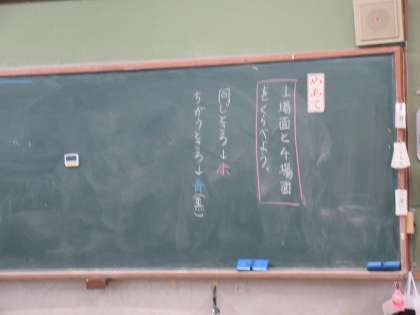 めあて
１場面と４場面
をくらべよう。
同じところ→赤
ちがうところ→青(黒)